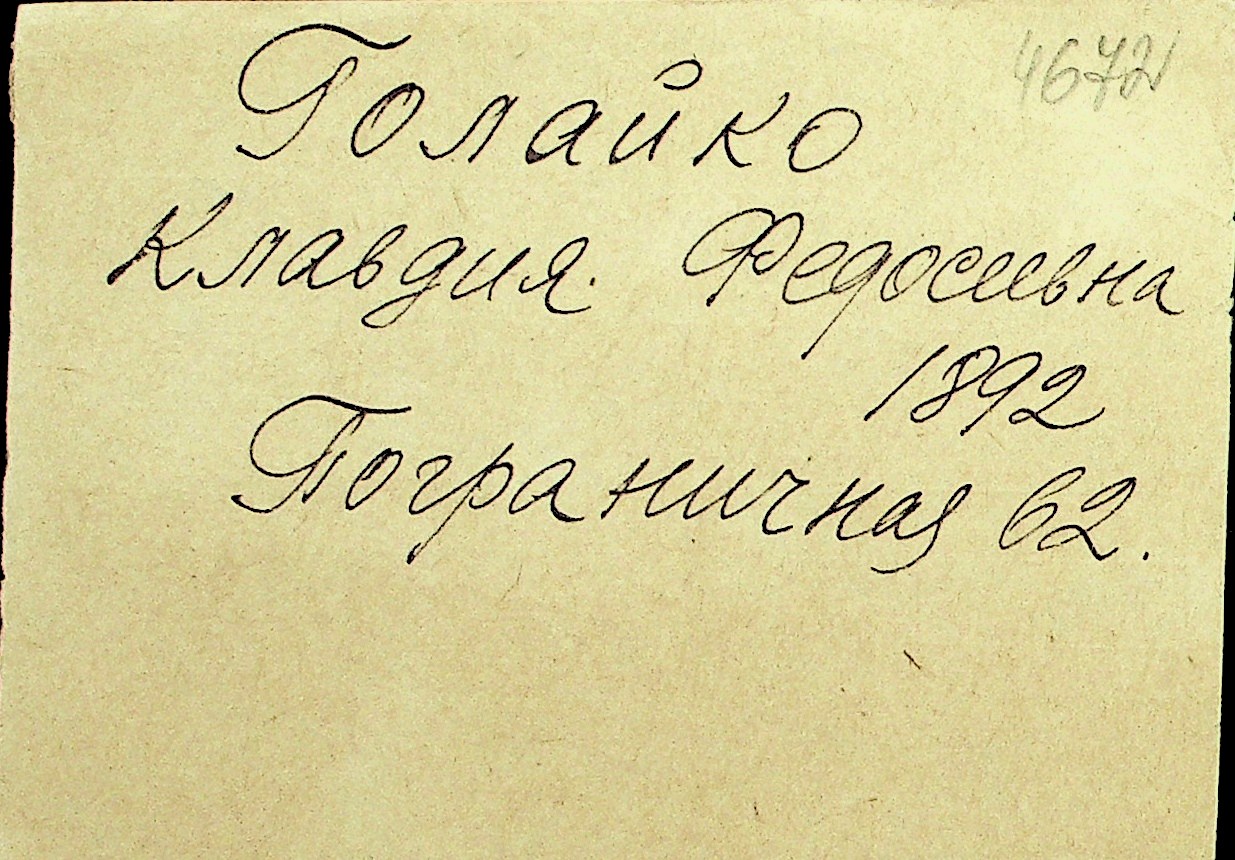 4672
Голайко
Клавдия. Федосиевна
1892
Пограничная 62.